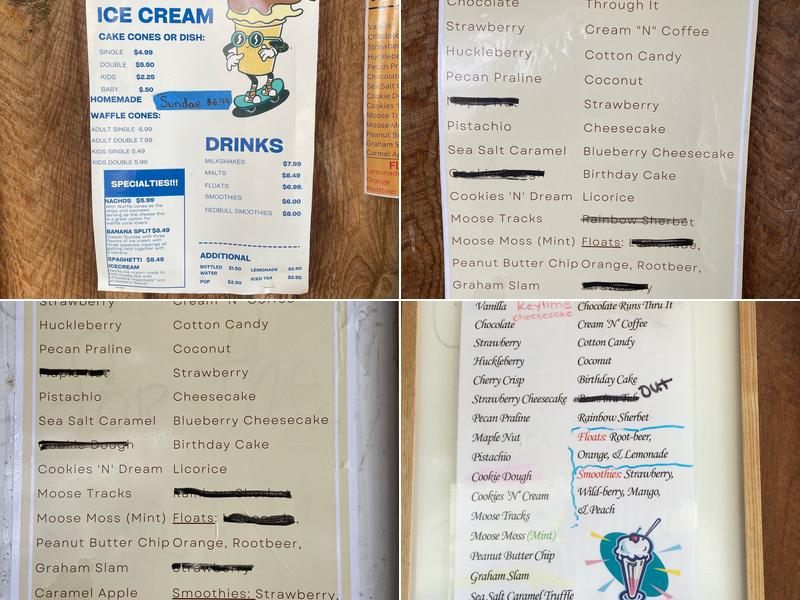 ICE CREAM
CAKE CONES OR DISH:
SINGLE $4.99
DOUBLE $5.50
KIDS $2.25
BABY $.50
HOMEMADE Sundae $6.99
WAFFLE CONES:
ADULT SINGLE 6.99
ADULT DOUBLE 7.99
KIDS SINGLE 5.49
KIDS DOUBLE 5.99
SPECIALTIES!!!
NACHOS $5.99
BANANA SPLIT $8.49
SPAGHETTI $8.49
ICECREAM
DRINKS
MILKSHAKES $7.99
MALTS $8.49
FLOATS $6.99.
SMOOTHIES $6.00
REDBULL SMOOTHIES $8.00
ADDITIONAL
BOTTLED WATER $1.50
POP $2.50
LEMONADE $2.50
ICED TEA $2.50
Lemonade
Orange
Rootbeer
Chocolate Through It
Strawberry Cream "N" Coffee
Huckleberry Cotton Candy
Pecan Praline Coconut
Strawberry
Pistachio Cheesecake
Sea Salt Caramel Blueberry Cheesecake
Birthday Cake
Cookies 'N' Dream Licorice
Moose Tracks Rainbow Sherbet
Moose Moss (Mint) Floats:
Peanut Butter Chip Orange, Rootbeer,
Graham Slam
Strawberry Cream "N" Coffee
Huckleberry Cotton Candy
Pecan Praline Coconut
Strawberry
Pistachio Cheesecake
Sea Salt Caramel Blueberry Cheesecake
Birthday Cake
Cookies 'N' Dream Licorice
Moose Tracks
Moose Moss (Mint) Floats:
Peanut Butter Chip Orange, Rootbeer,
Graham Slam
Caramel Apple Smoothies: Strawberry,
Vanilla Keylime cheesecake Chocolate Runs Thru It
Chocolate Cream 'N' Coffee
Strawberry Cotton Candy
Huckleberry Coconut
Cherry Crisp Birthday Cake
Strawberry Cheesecake OUT
Pecan Praline Rainbow Sherbet
Maple Nut Floats: Root-beer,
Pistachio Orange, & Lemonade
Cookie Dough Smoothies: Strawberry,
Cookies 'N' Cream Wild-berry, Mango,
Moose Tracks & Peach
Moose Moss (Mint)
Peanut Butter Chip
Graham Slam
Sea Salt Caramel Truffle